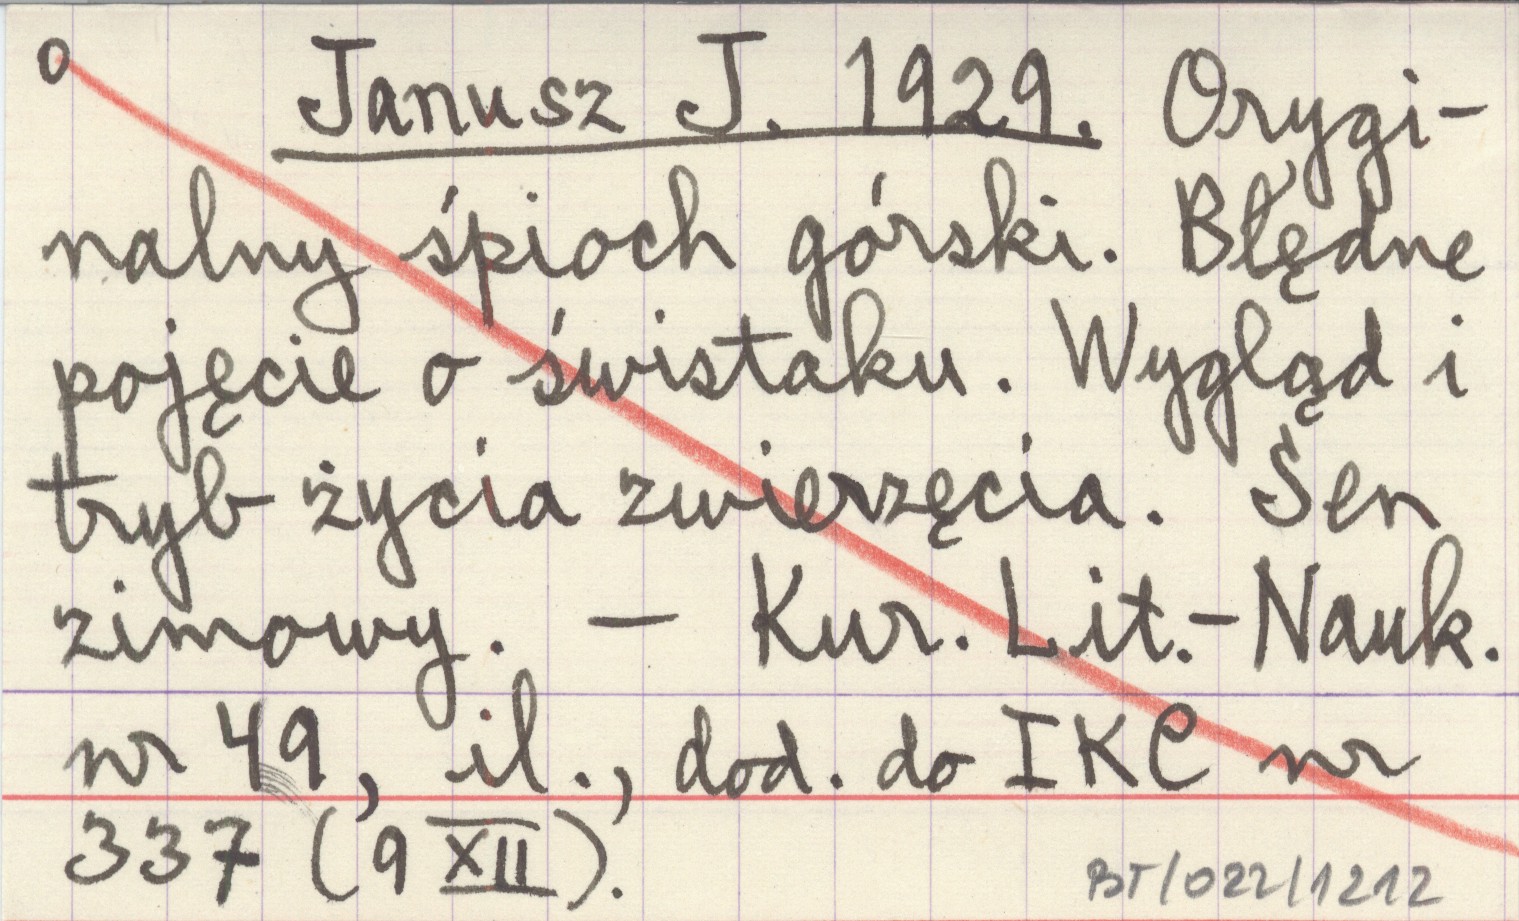 o Janusz J. 1929. Orygi-
nalny śpioch górski. Błędne
pojęcie o świstaku. Wygląd i
tryb życia zwierzęcia. Sen
zimowy. — Kur. Lit.-Nauk.
nr 49, il., dod. do IKC nr
337 (9 XII).
BT/022/1212